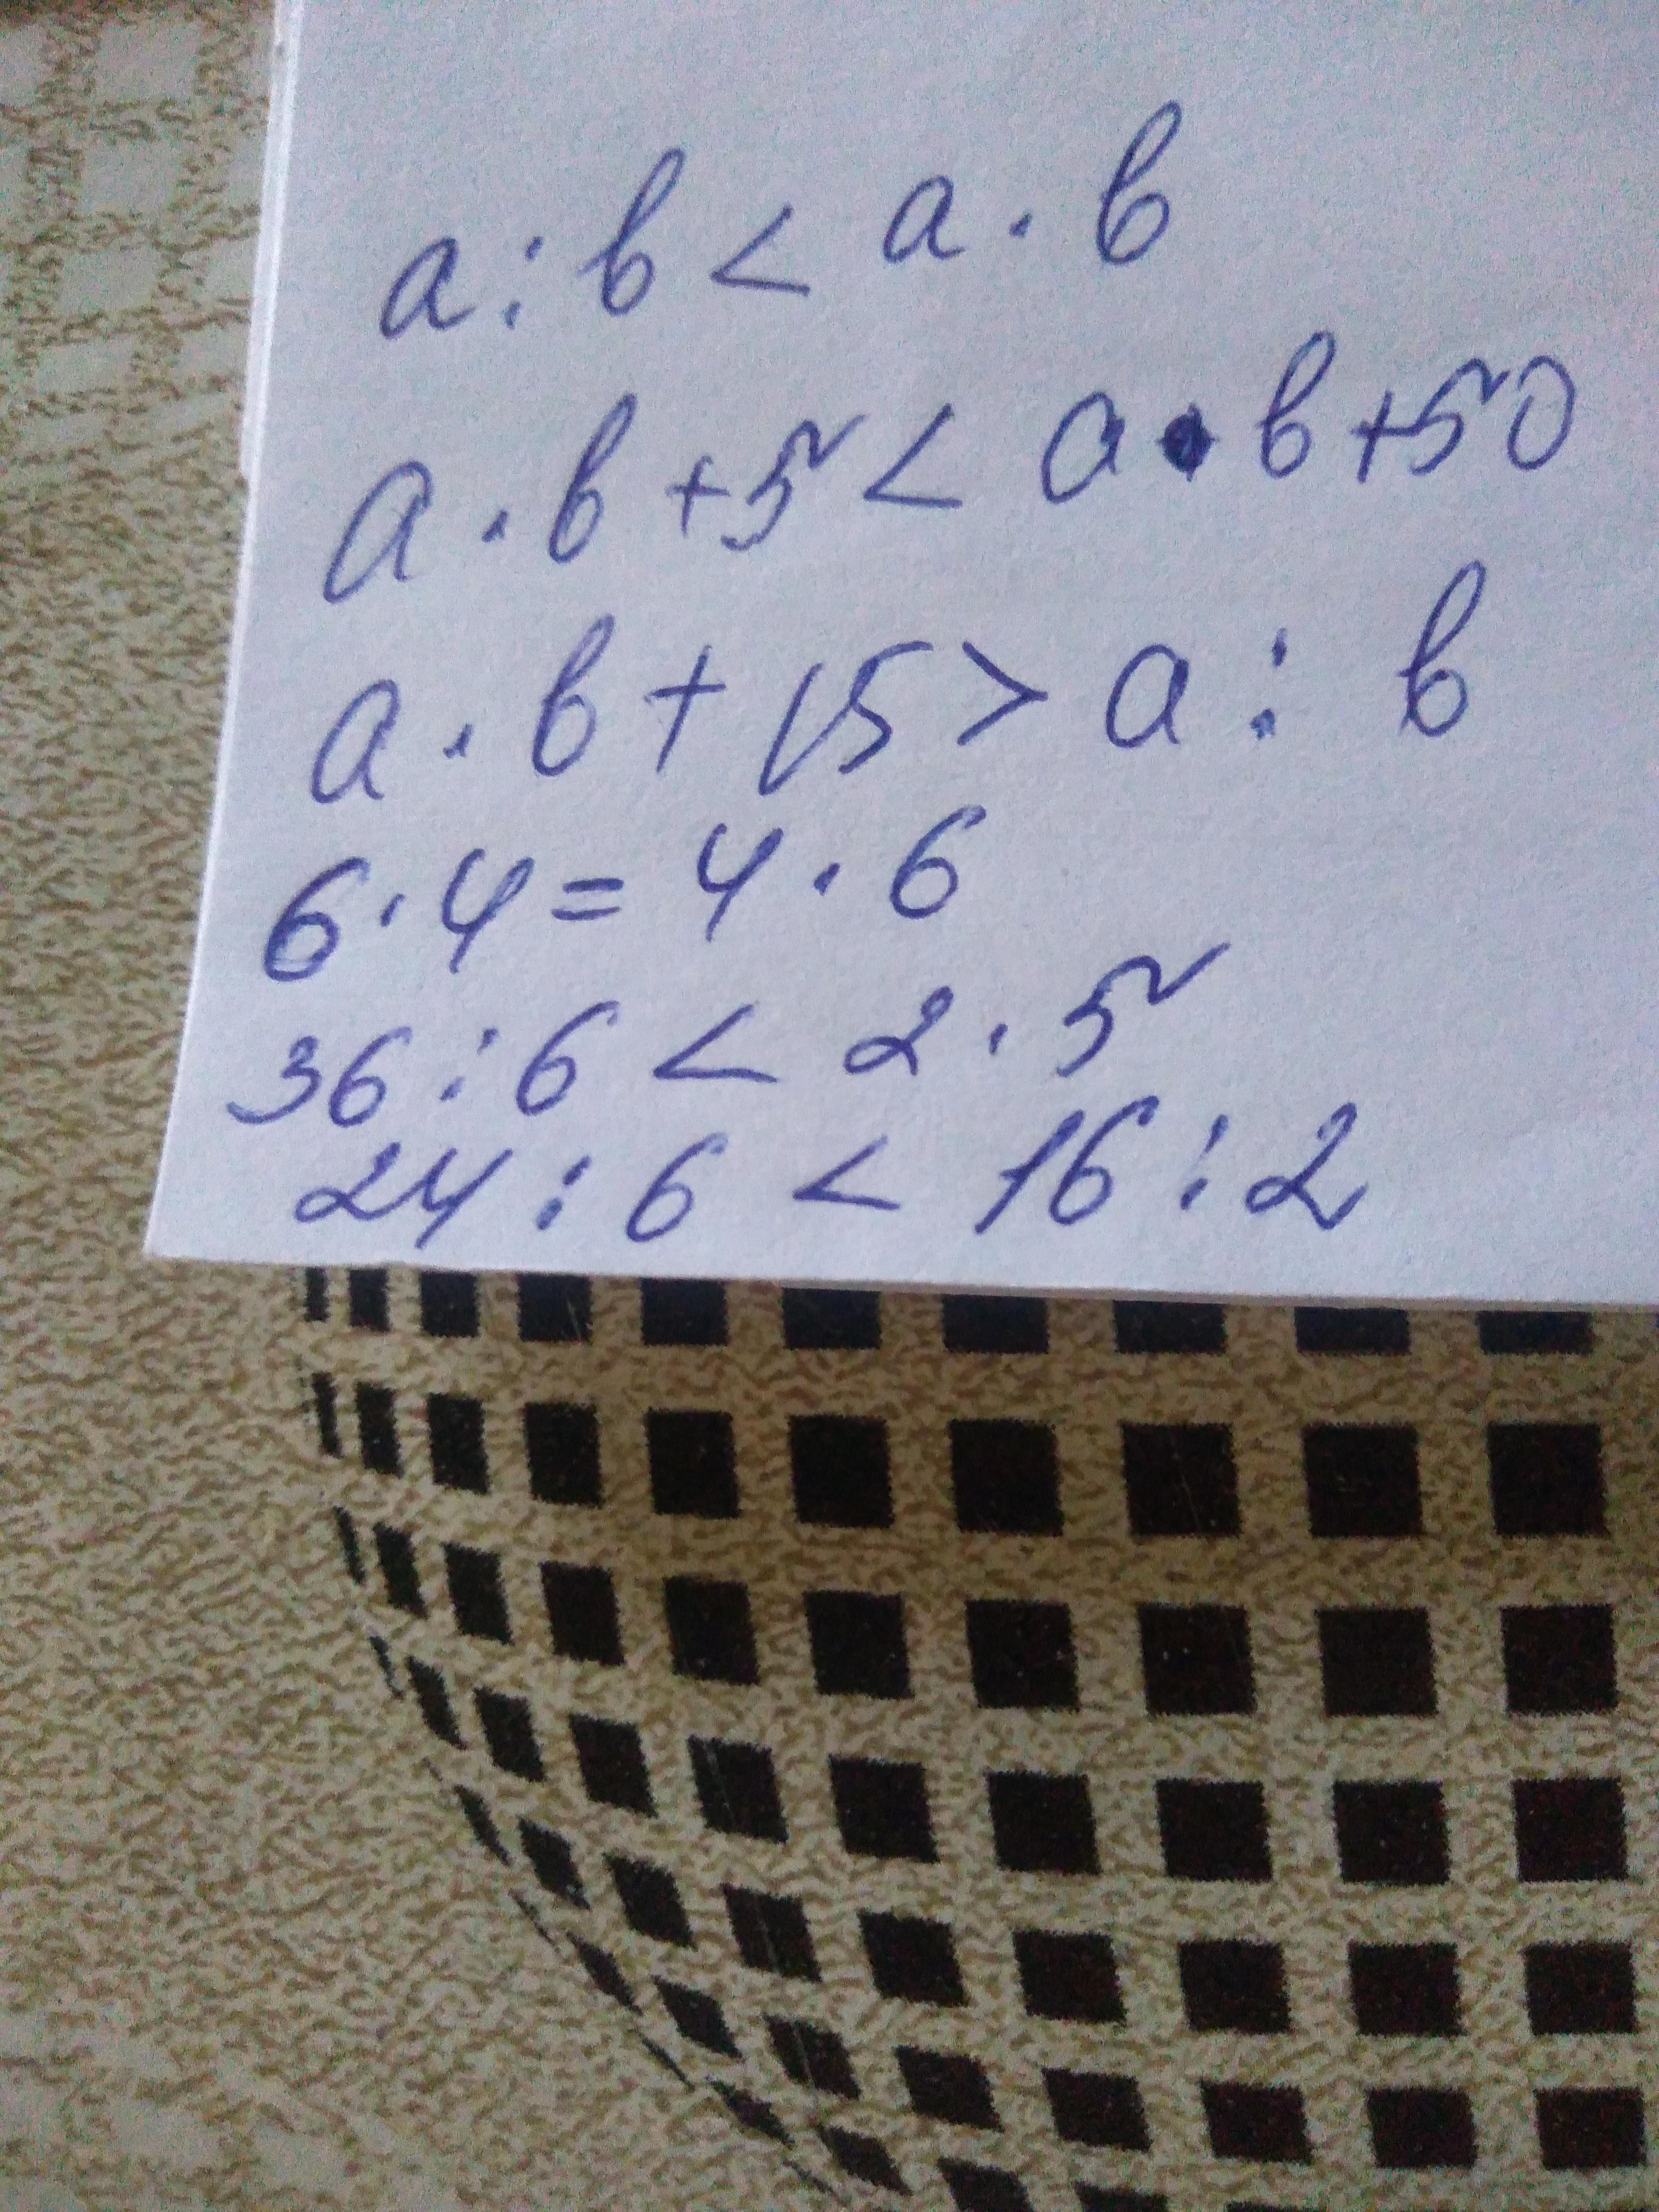 a : b < a · b
a · b + 5 < a · b + 50
a · b + 15 > a : b
6 · 4 = 4 · 6
36 : 6 < 2 · 5
24 : 6 < 16 : 2